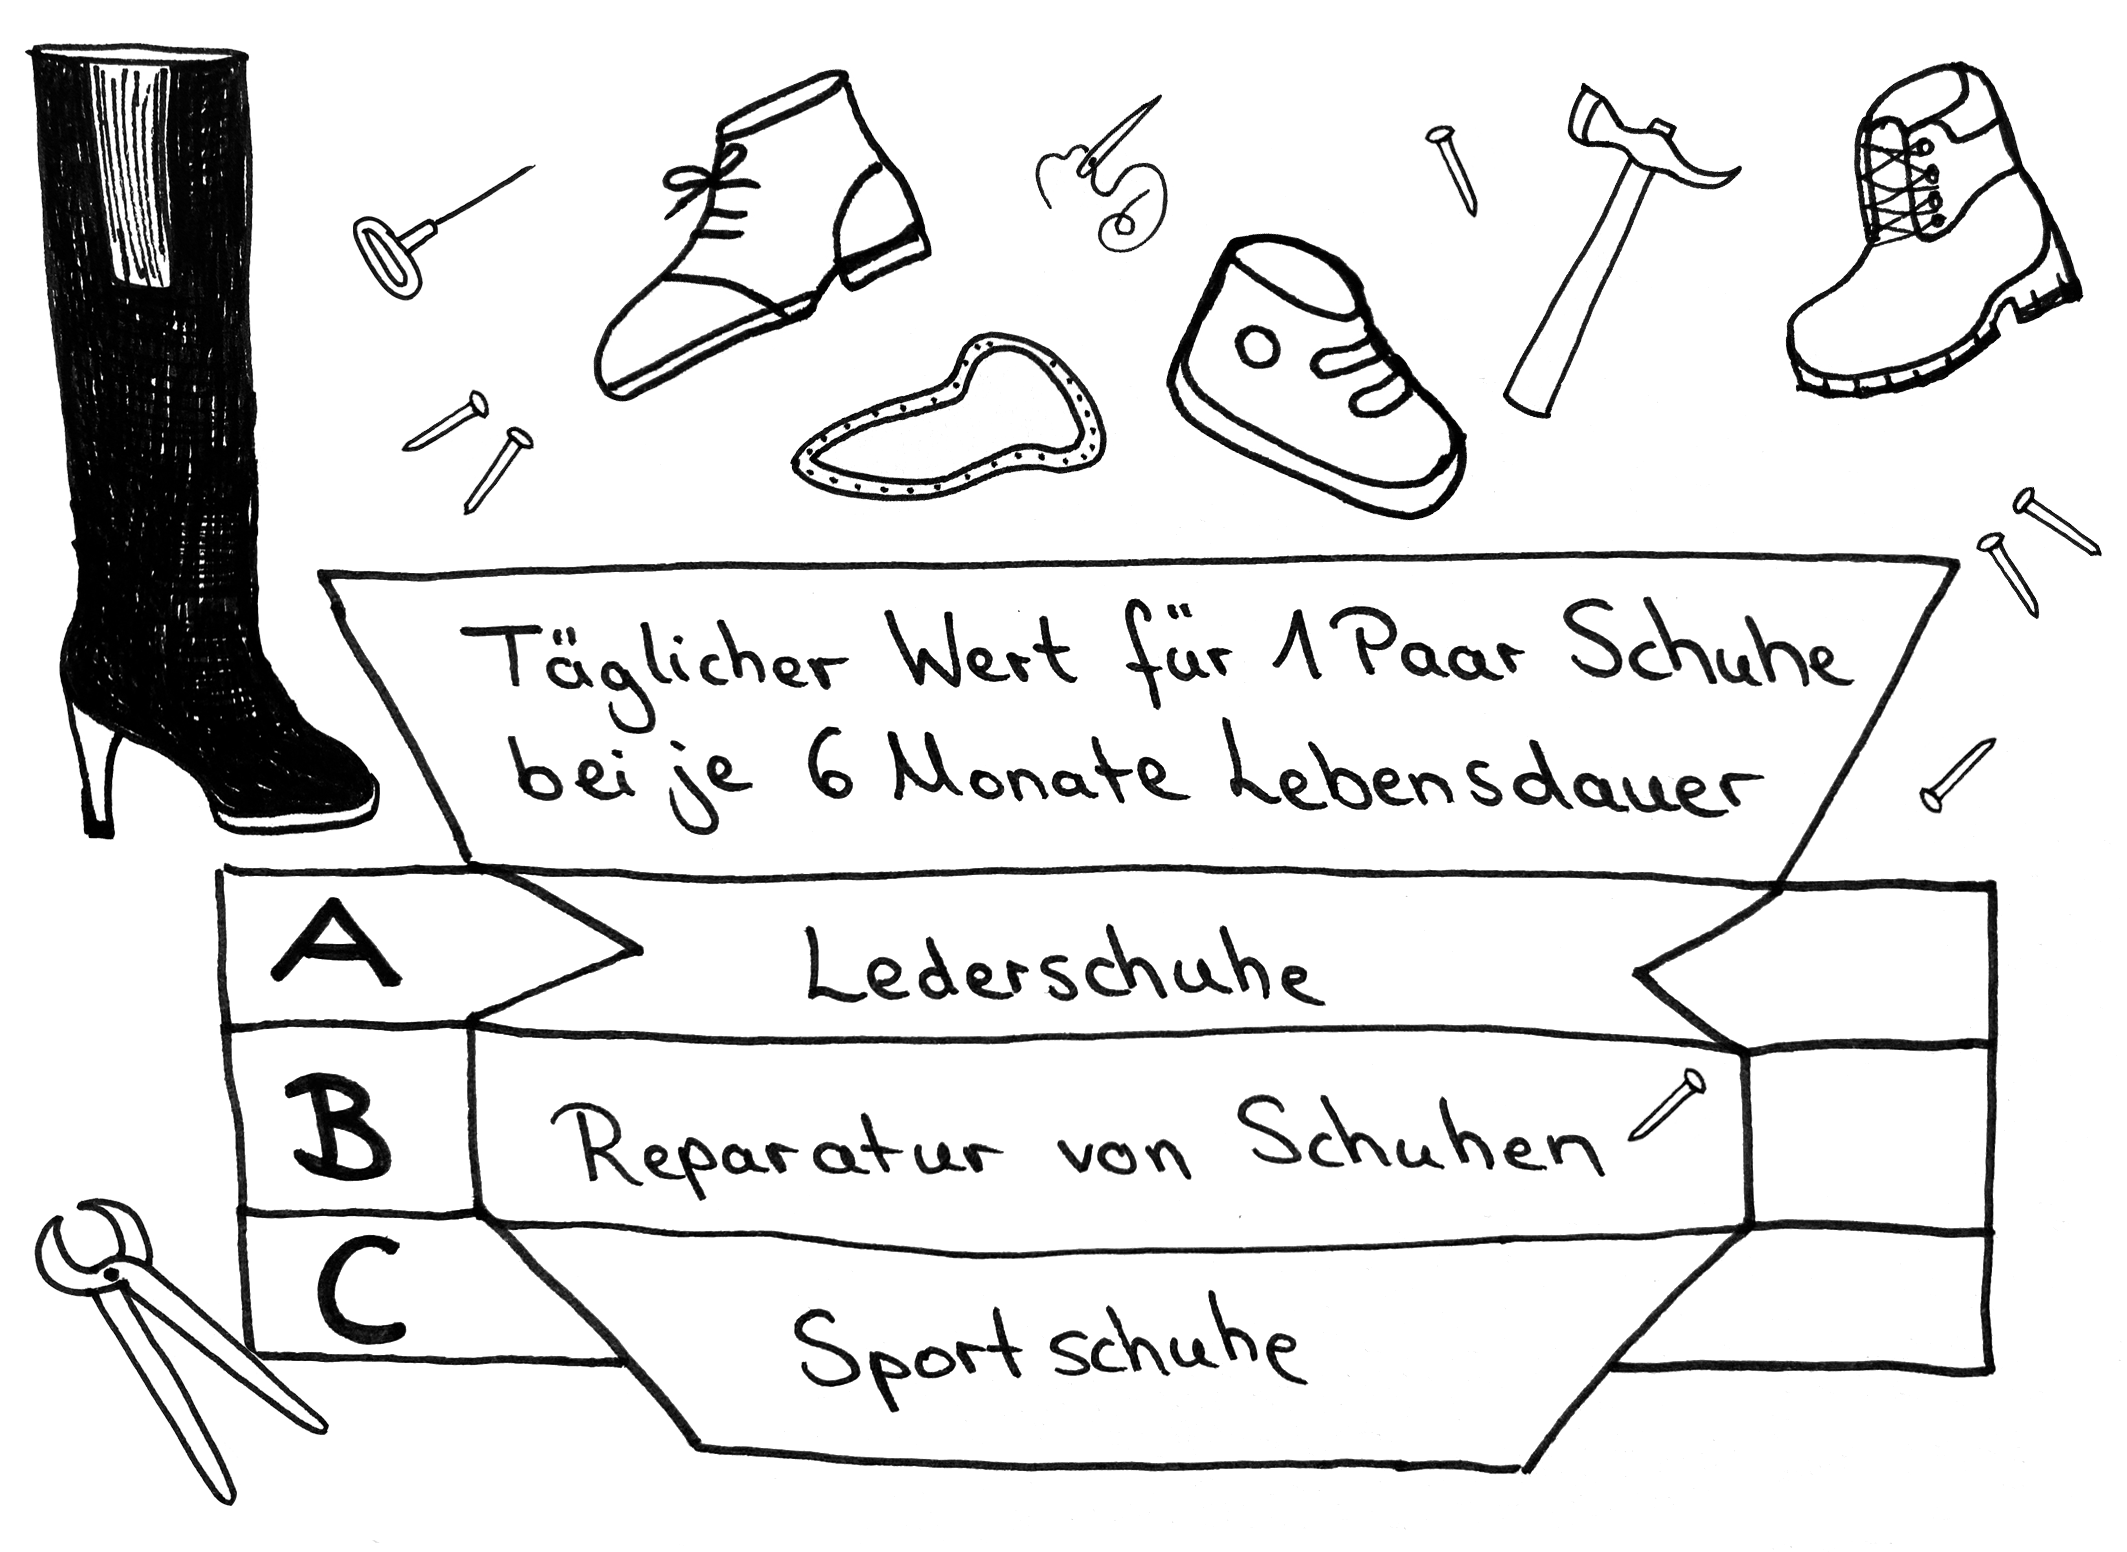 Täglicher Wert für 1 Paar Schuhe
bei je 6 Monate Lebensdauer
A Lederschuhe
B Reparatur von Schuhen
C Sportschuhe